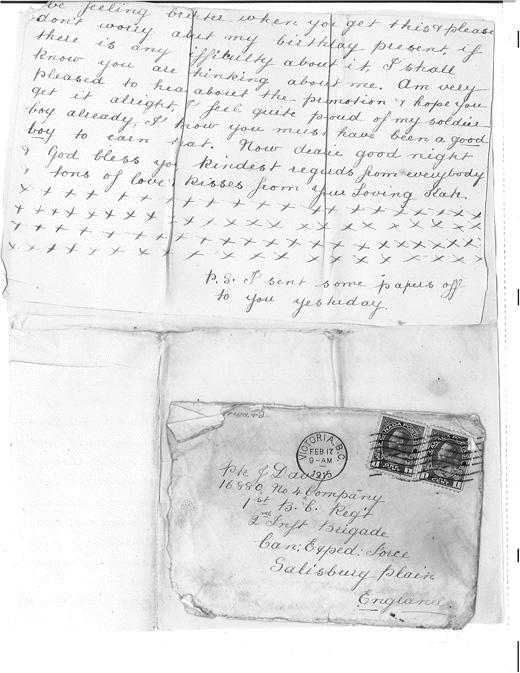 be feeling brighter when you get this & please
don't worry abut my birthday present, if
there is any difficulty about it, I shall
know you are thinking about me. Am very
pleased to hear about the promotion & hope you
get it alright, I feel quite proud of my soldier
boy already, I know you must have been a good
boy to earn that. Now dearie good night
& God bless you kindest regards from everybody
& tons of love & kisses from your Loving Kate.
x x x x x x x x x x x x x x x x x x x x x x x
x x x x x x x x x x x x x x x x x x x x x x x
x x x x x x x x x x x x x x x x x x x x x x x
x x x x x x x x x x x x x x x x x x x x x x x
P.S. I sent some papers off
to you yesterday.
VICTORIA, B.C.
FEB 17
9-AM
1915
CANADA POSTAGE
CANADA POSTAGE
Pte J Davis
16880 No 4 Company
1st B.C. Regt
2nd Inft Brigade
Can: Exped: Force
Salisbury Plain
England.